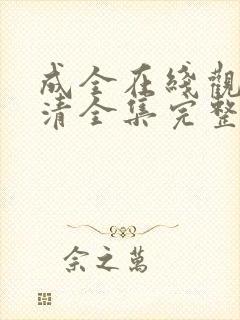 成全在綫觀
清全集完整
佘之萬